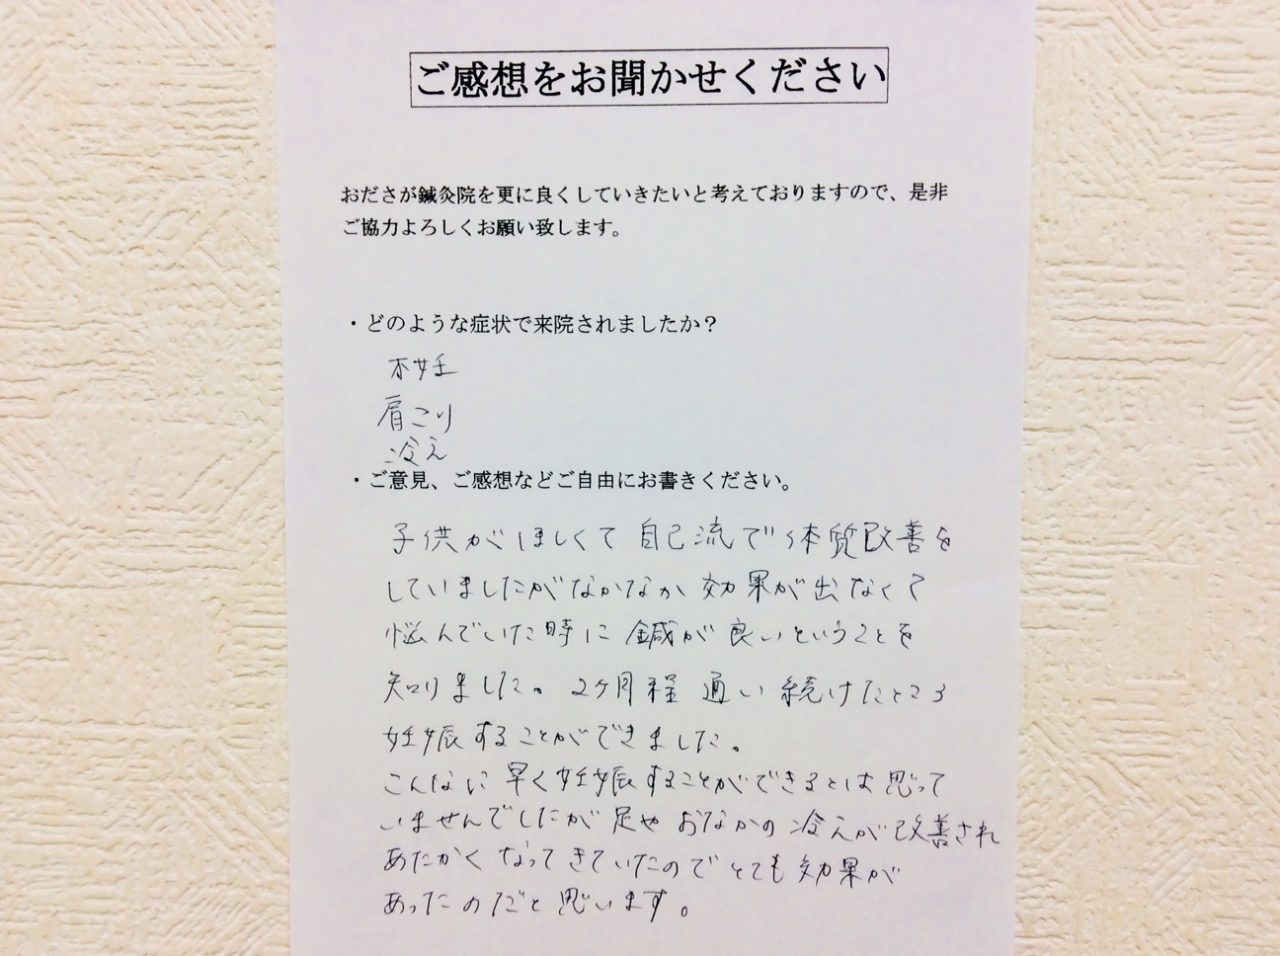 ご感想をお聞かせください
おださが鍼灸院を更に良くしていきたいと考えておりますので、是非
ご協力よろしくお願い致します。
・どのような症状で来院されましたか？
不妊
肩こり
冷え
・ご意見、ご感想などご自由にお書きください。
子供がほしくて自己流で体質改善を
していましたがなかなか効果が出なくて
悩んでいた時に鍼が良いということを
知りました。2ヶ月程通い続けたところ
妊娠することができました。
こんなに早く妊娠することができるとは思って
いませんでしたが足やおなかの冷えが改善され
あたたかくなってきていたのでとても効果が
あったのだと思います。